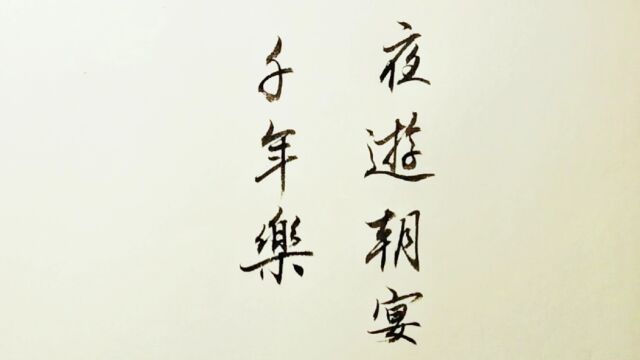 夜遊朝宴
千年樂